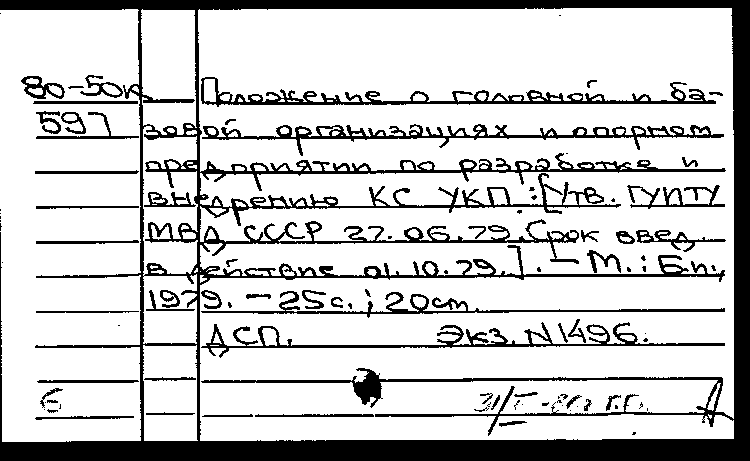 80-50к Положение о головной и ба-
597 зовой организациях и опорном
предприятии по разработке и
внедрению КС УКП.:[Утв. ГУИТУ
МВД СССР 27.06.79. Срок введ.
в действие 01.10.79.]. – М.: Б.и.,
1979. – 25с.; 20см.
ДСП. Экз. N1496.
6